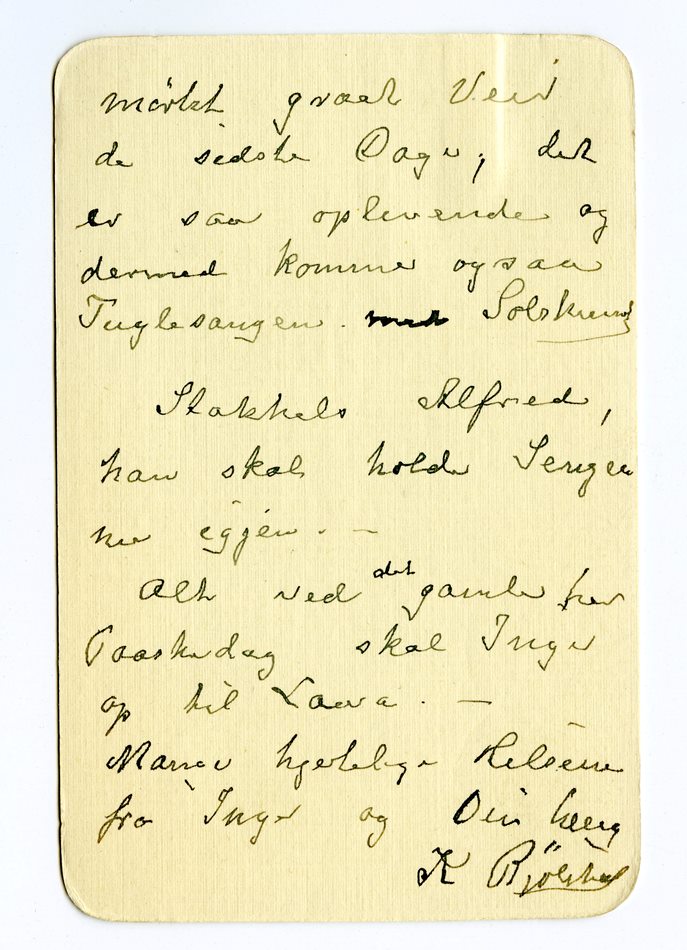 mörkt graat Veir
de sidste Dage, det
er saa oplevende og
dermed kommer ogsaa
Fuglesangen. Solskinnet
Stakkels Alfred,
han skal holde Sengen
nu igjen. —
Alt ved det gamle her
Paaskedag skal Inger
op til Laura. —
Mange hjertelige Hilsener
fra Inger og Din heng
K Bjölstad